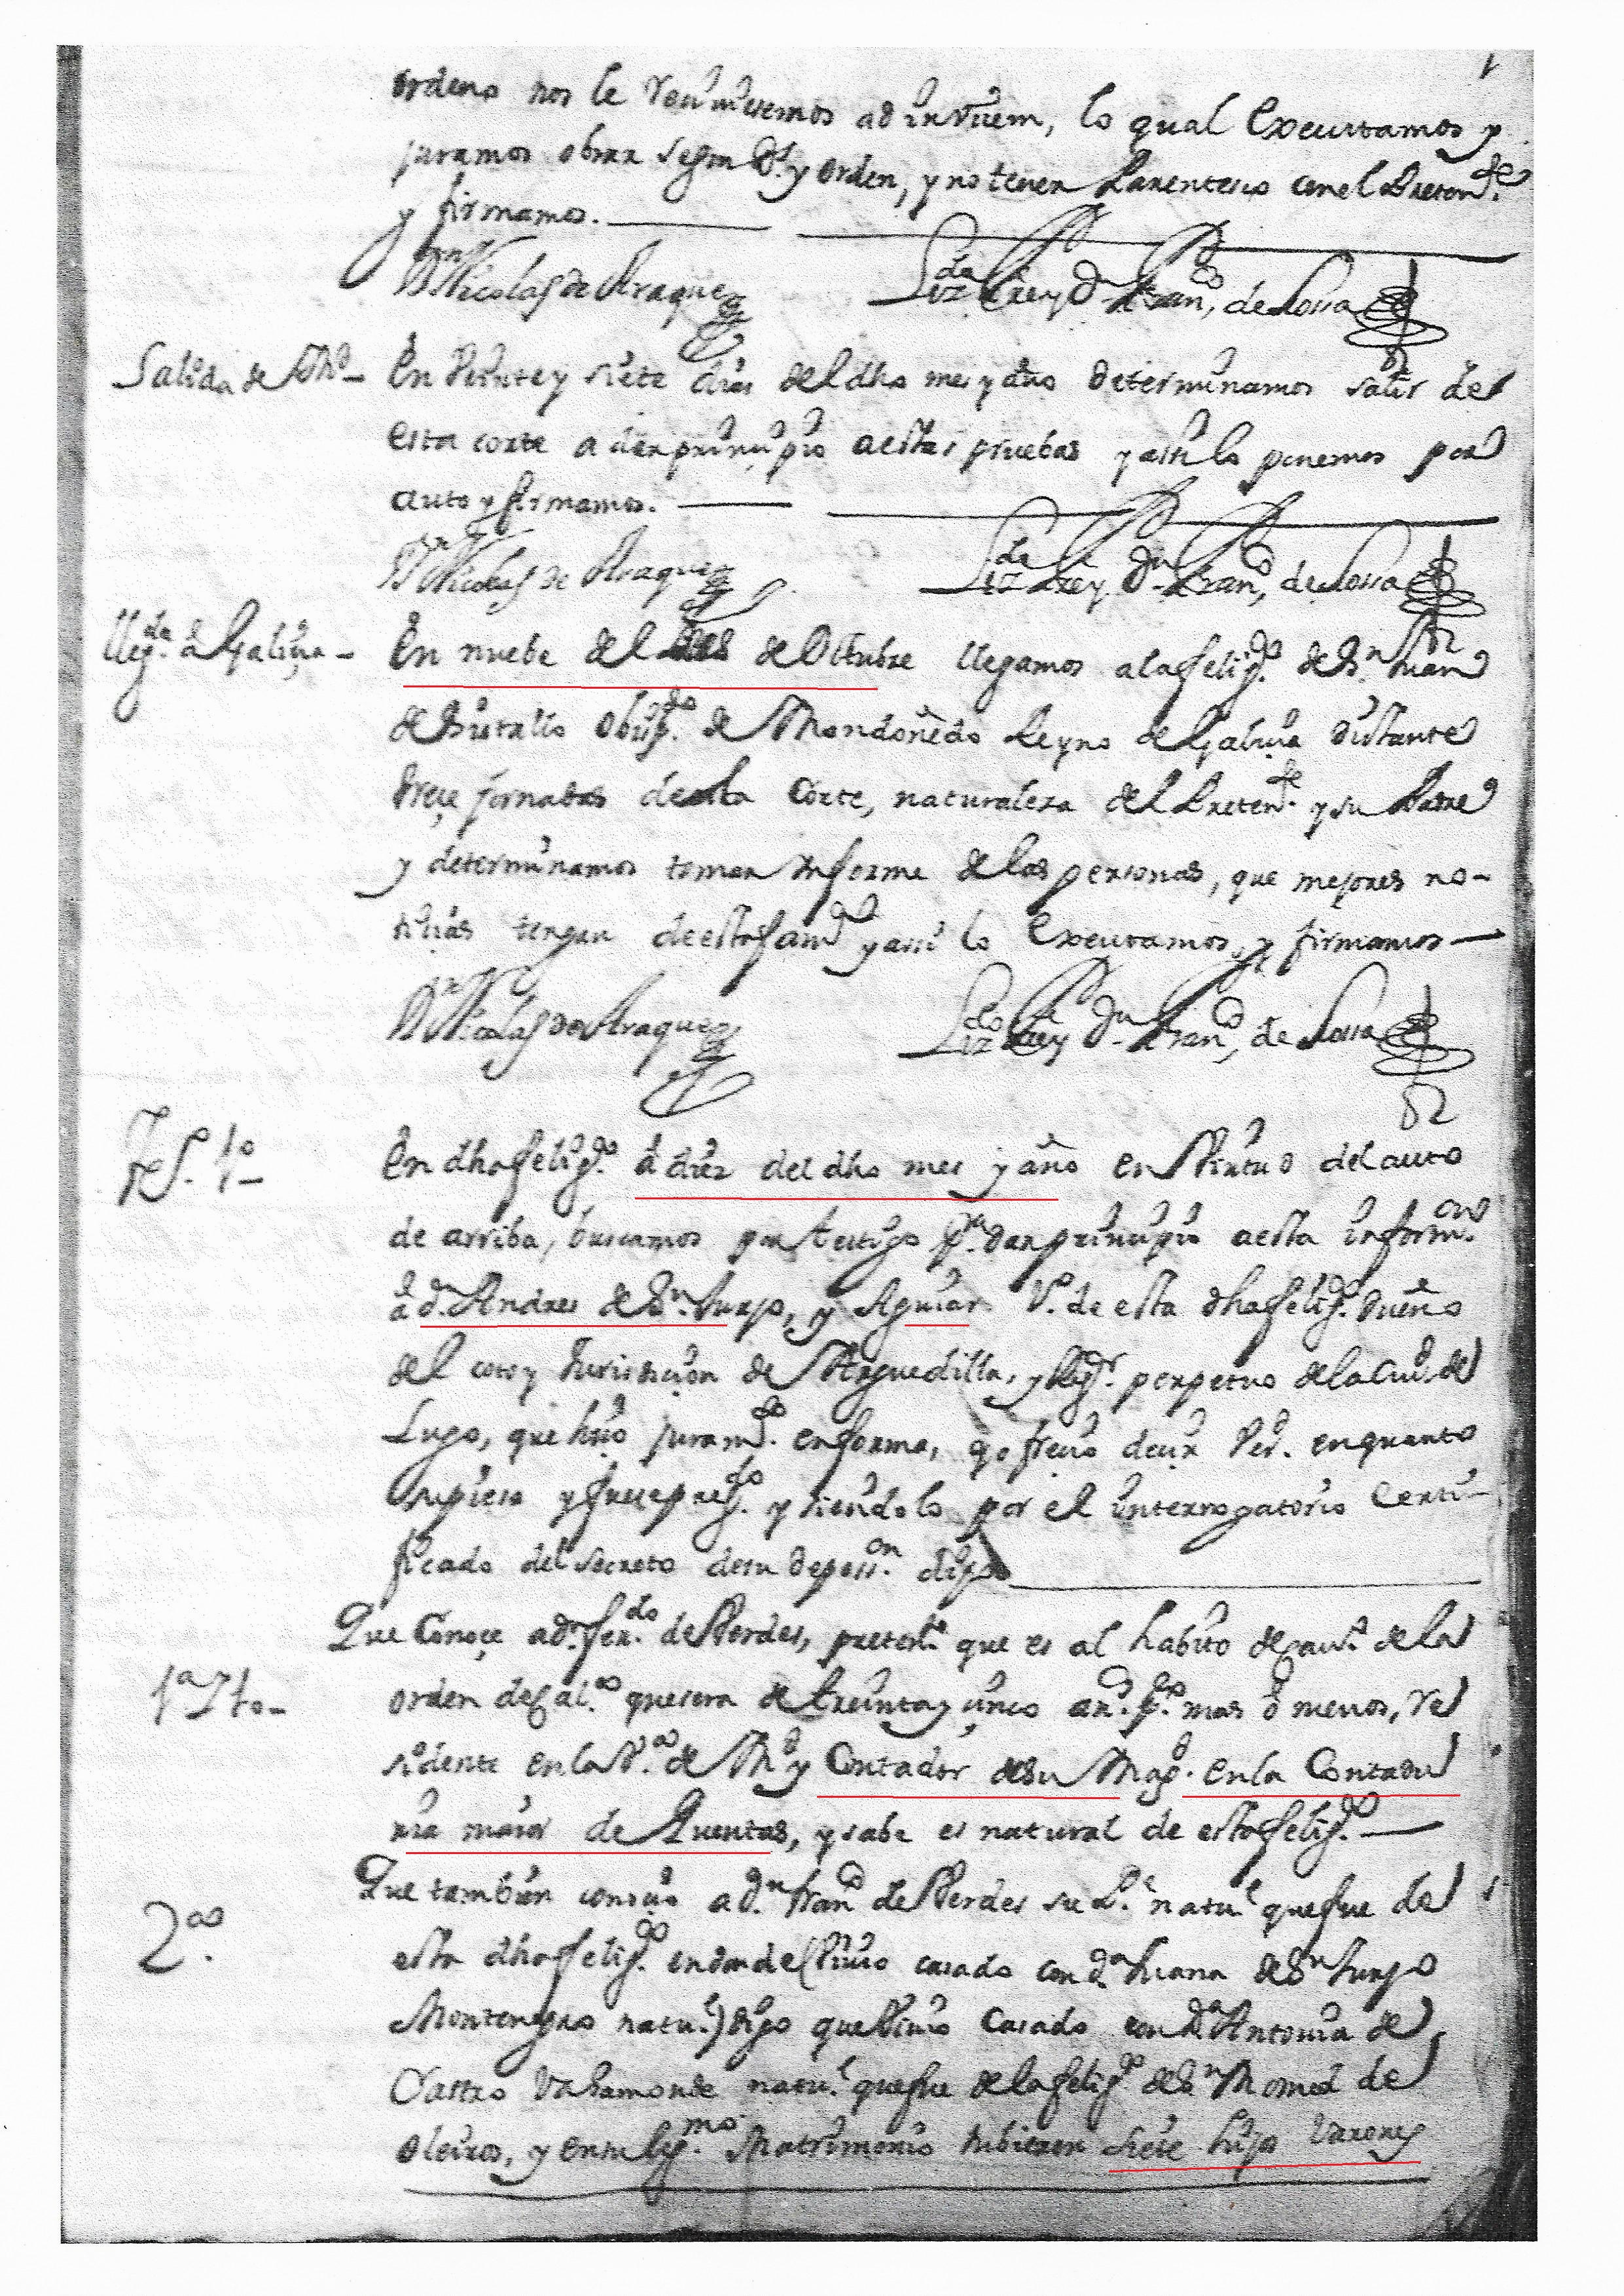 ordena nos le remitieremos ad invicem, lo qual Executamos y
juramos obrar segun Dr.º y orden, y no tener Parentesco con el Preten.te
y firmamos.
Dn Nicolas de Araque
Lizdo Frey Dn Franco, de
Salida de Md – En Veinte y siete dias del dho mes y año determinamos salir de
esta corte a dar principio a estas pruebas y assi lo ponemos por
auto y firmamos.
Dn Nicolas de Araque
Lizdo Frey Dn Franco, de
lleg.da â Galiçia – En nuebe del mes de Octubre llegamos a la felig.da de Sn. Juan
de obisp.do de Mondoñedo Reyno de Galicia distante
treçe jornadas desta Corte, naturaleza del Preten.te y su Padre
y determinamos tomar informe de las personas, que mejores no-
ticias tengan de esta fam.a y assi lo Executamos, y firmamos –
Dn Nicolas de Araque
Lizdo Frey Dn Franco, de
Tes. 1º – En dha felig.da â diez del dho mes y año en Virtud del auto
de arriba, buscamos por testigo p.a dar principio a esta inform.on
â dn. Andres de Sn. Jurjo, y Aguiar V.º de esta dha felig.da dueño
del coto y Jurisdicion de Arguedilla, y Reg.r perpetuo de la Ciud. de
Lugo, que hiço juram.to en forma, y ofreçio decir Ver. en quanto
supiere y fuere preg.do y siendolo por el interrogatorio Certi-
ficado del secreto de su deposi.on dijo
Que Conoçe a dn. Fer.do de Verdes, pretent.e que es al habito de cau.º de la
1ª Ito – orden de cal.va que sera de treinta y cinco an.s p.co mas ô menos, re
sidente en la V.a de Md y Contador de su Mag.d en la Contadu
ria maior de Quentas, y sabe es natural de esta felig.da –
2ª. Que tambien conocio a dn. Franco de Verdes su P.e natu.l que fue de
esta dha felig.da en donde (Vivio casado con da Juana de Sn Jurjo
Montenegro natu.l) digo que Vivio Casado con Da Antonia de
Castro Vahamonde natu.l que fue de la felig.da de Sn Thomed de
oleiros, y en su leg.mo Matrimonio tubieron siete hijos Varones